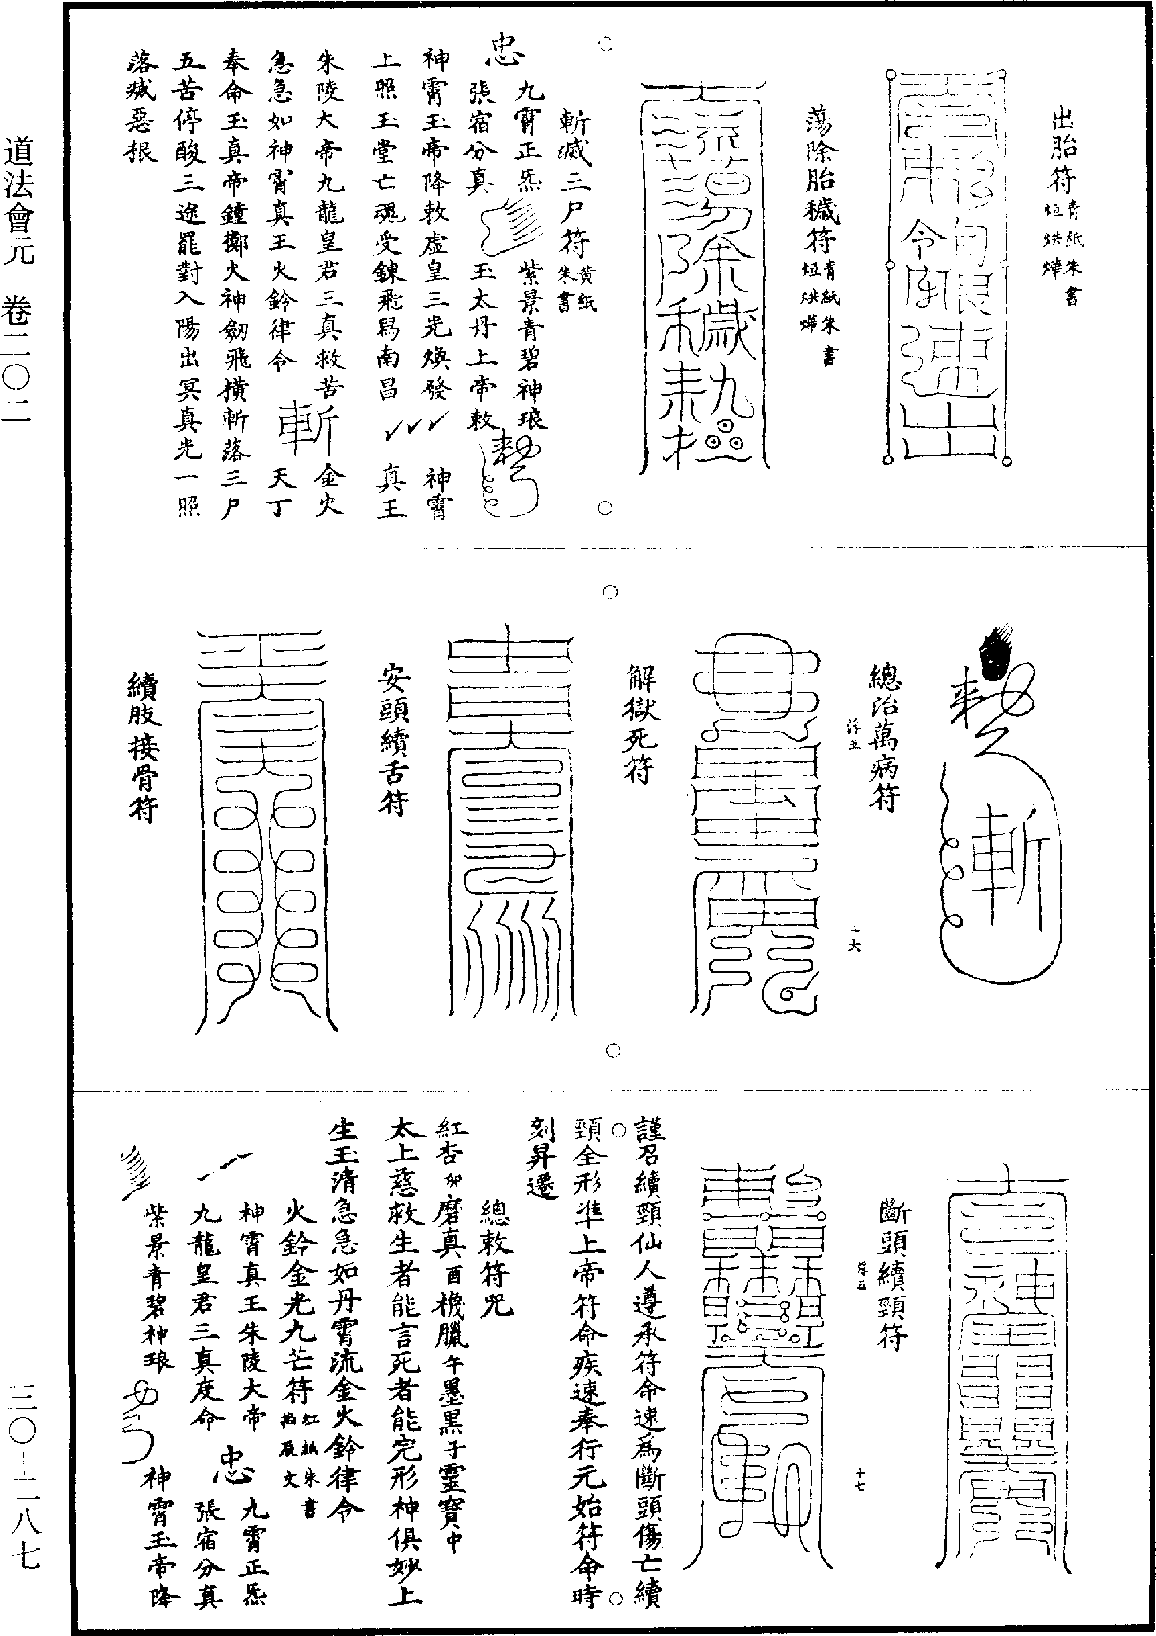 道法會元　卷二〇二
三〇－二八七
出胎符青紙朱書
蕩除胎穢符青紙朱書
斬滅三尸符黃紙朱書
九霄正炁　紫景青碧神琅
張宿分真　玉太丹上帝敕
忠
神霄玉帝降敕虛皇三光煥發　神霄
上照玉堂亡魂受鍊飛昇南昌　真王
朱陵大帝九龍皇君三真救苦　金火
急急如神霄真王火鈴律令　斬　天丁
奉命玉真帝鍾擲火神劒飛橫斬落三尸
五苦停酸三途罷對入陽出冥真光一照
落滅惡根
斬
總治萬病符
解獄死符
安頭續舌符
續肢接骨符
斷頭續頸符
十七
謹召續頸仙人遵承符命速爲斷頭傷亡續
頸全形準上帝符命疾速奉行元始符命時
刻昇遷
總敕符咒
紅杏卯磨真酉機臘午墨黑子靈寶中
太上慈救生者能言死者能完形神俱妙上
生玉清急急如丹霄流金火鈴律令
火鈴金光九芒符紅紙朱書
神霄真王朱陵大帝　九霄正炁
九龍皇君三真度命　忠　張宿分真
紫景青碧神琅　神霄玉帝降